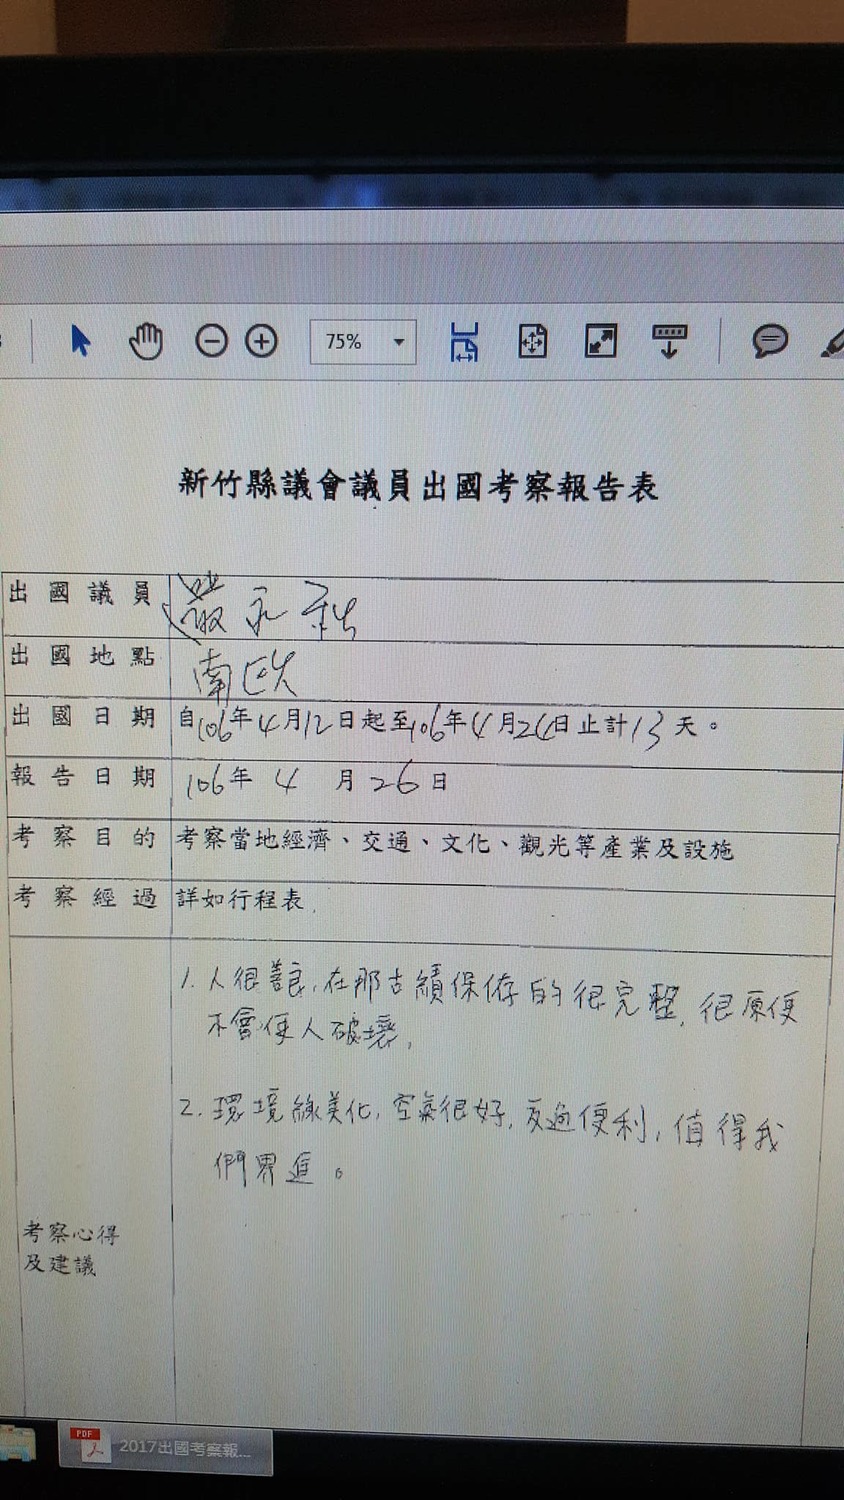 75%
新竹縣議會議員出國考察報告表
出國議員 嚴永秋
出國地點 南欧
出國日期 自106年4月12日起至106年4月24日止計13天。
報告日期 106年4月26日
考察目的 考察當地經濟、交通、文化、觀光等產業及設施
考察經過 詳如行程表
1. 人很善良,在那古績保存的很完整,很原便
不會使人破壞,
2. 環境綠美化,空氣很好,交通便利,值得我
們進。
考察心得
及建議
PDF
2017出國考察報...